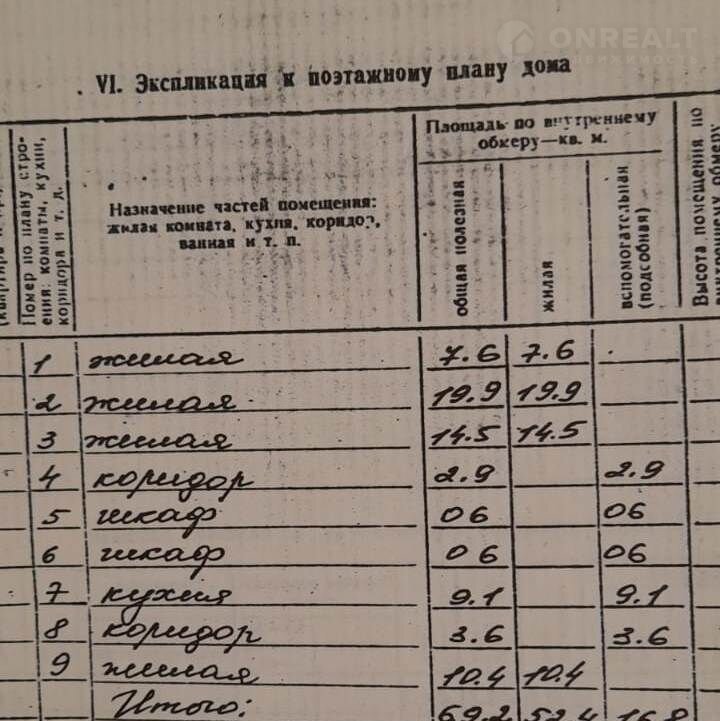 ONREALT
НЕДВИЖИМОСТЬ
VI. Экспликация к поэтажному плану дома
Номер по плану стро-
ения: комнаты, кухни,
коридора и т. д.
Назначение частей помещения:
жилая комната, кухня, коридор,
ванная и т. п.
Площадь по внутреннему
обмеру—кв. м.
общая полезная
жилая
вспомогательная
(подсобная)
Высота помещения по
внутреннему обмеру
1 жилая 7.6 7.6
2 жилая 19.9 19.9
3 жилая 14.5 14.5
4 коридор 2.9 2.9
5 шкаф 06 06
6 шкаф 06 06
7 кухня 9.1 9.1
8 коридор 3.6 3.6
9 жилая 10.4 10.4
Итого: 69.2 52.4 16.8